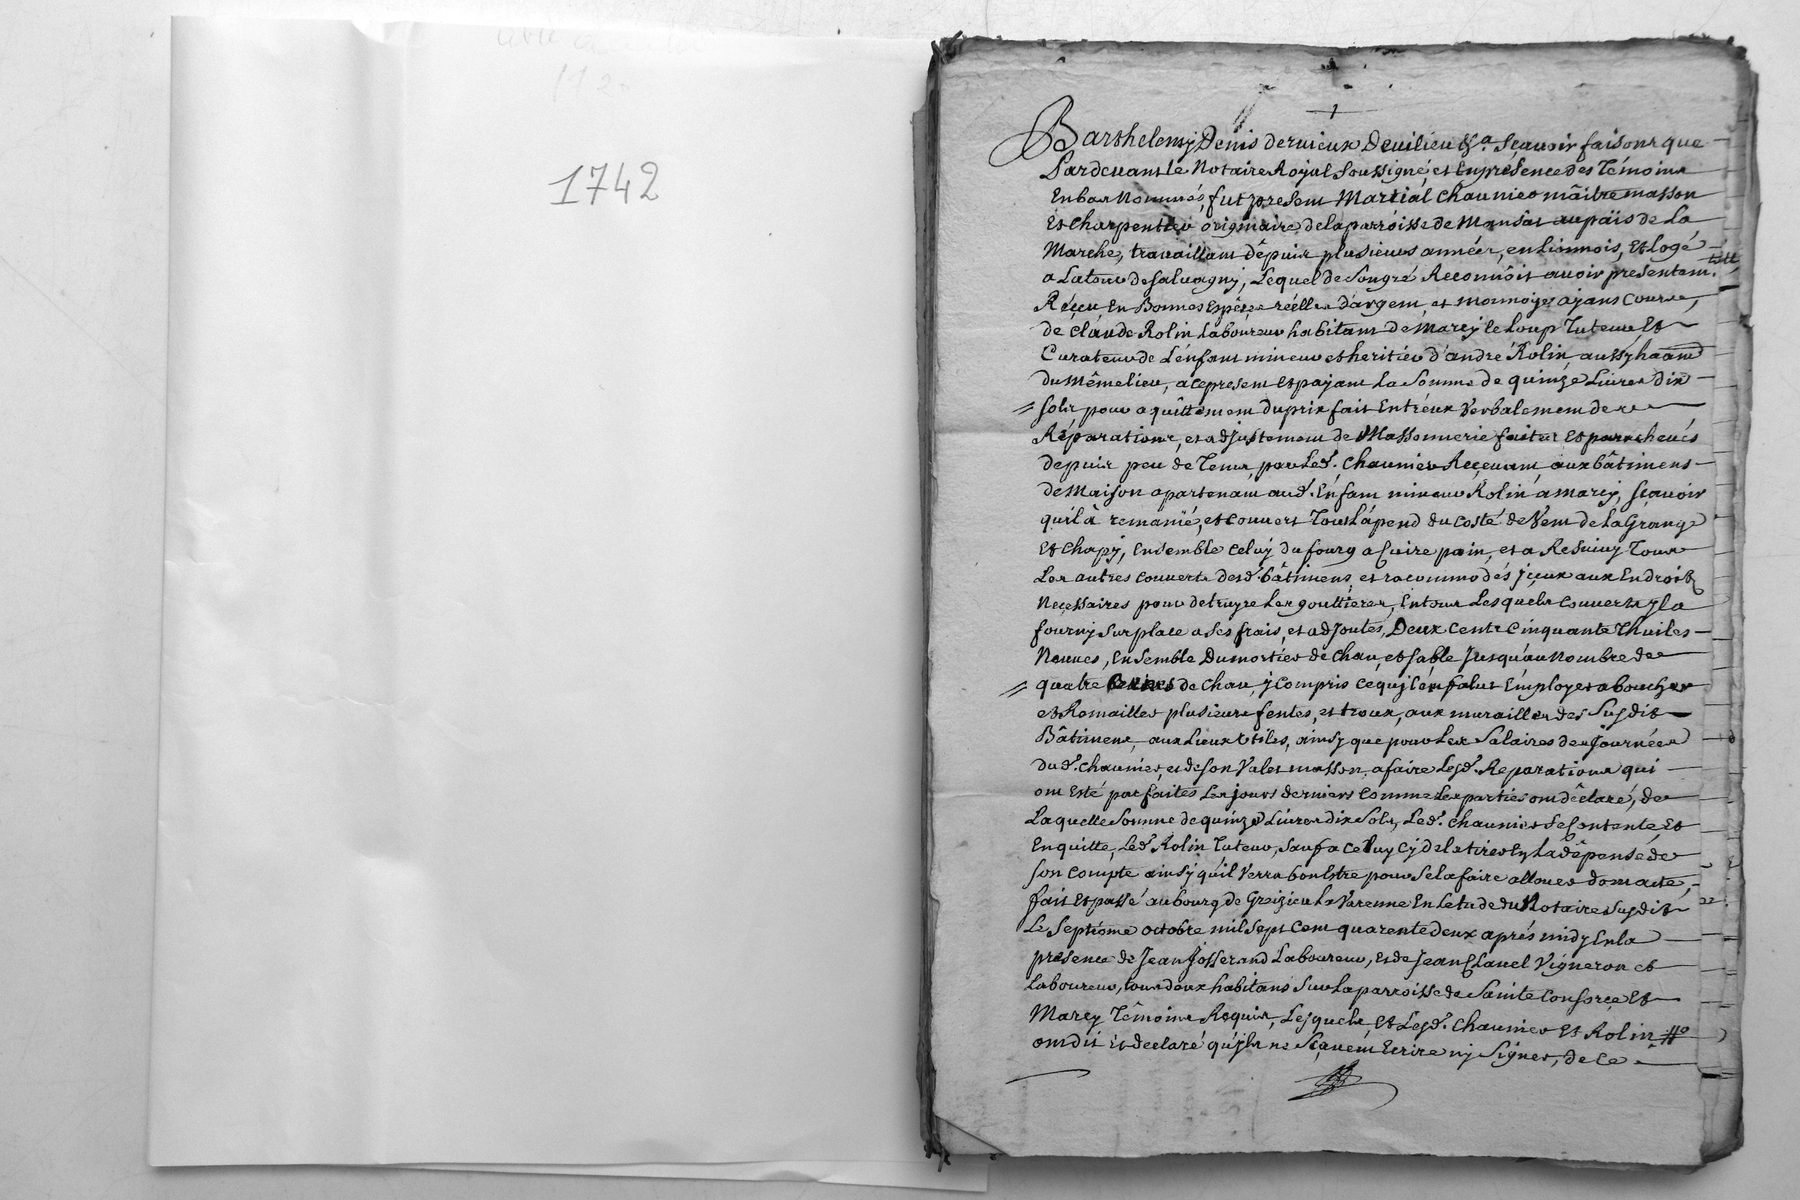 1742
Barthelemy Denis dervieux Devilieu &a. Sçauoir faisons que
Pardeuant le Notaire Royal Soussigné, et En presence des Témoins
En bas Nommés, fut present Martial Chaunier mâitre masson
Et Charpentier originaire de la parroisse de Mansat au païs de La
Marche, trauaillant dépuis plusieurs années, en Lionnois, Et logé
a Latour de Saluagny, Lequel de Son gré Reconnôit auoir presentem.t
Réçeu En Bonnes Espèçes réélles d'argent, et monnoyes ayans Cours,
de Claude Rolin Laboureur habitant de Marcy le Loup Tuteur Et
Curateur de L'énfant mineur et heritier d'andré Rolin aussy haant
du Même lieu, a ce present Et payant La Somme de quinze Liures dix
Sols pour aquittement du prix fait Entréux Verbalement de
Réparations, et adjustement de Massonnerie faites Et paracheués
depuis peu de Tems, par Led. Chaunier Reçeuant aux bâtimens
de Maison apartenant aud. Enfant mineur Rolin a marcy, sçauoir
quil à remanié, et couuert Tout L'apend du Costé de Vent de La Grange
Et Chapy, Ensemble Celuy du fourg a Cuire pain, et a Resuiuy Tous
Les autres Couuerts desd. bâtimens, et racommodés jçeux aux Endroits
Neçessaires pour detruyre Les gouttieres, En tous Lesquels Couuerts yl a
fourny Sur place a Ses frais, et adjoutés, Deux Cents Cinquante Thuiles
Neuues, Ensemble Du mortier de Chau, et Sable Jusqu'au Nombre de
quatre de Chau, y Compris Ce qu'il én falut Employer a boucher
et Romailler plusieurs fentes, et troux, aux murailles des Susdits
Bâtimens, aux Lieux Utiles, ainsy que pour Les Salaires des Journées
du d. Chaunier, et de Son Valet masson, a faire Lesd. Reparations qui
ont Esté parfaites Les jours derniers Comme Les parties ont déclaré, de
Laquelle Somme de quinze Liures dix Sols, Led. Chaunier Se Contente, Et
En quitte, Led. Rolin Tuteur, Sauf a Celuy Cy de la tirer En La dépense de
Son Compte ainsy qu'il Verra bon Estre pour Se la faire allouer dont acte,
fait Et passé au bourg de Greizieu La Varenne En Letude du Notaire Susdit
Le Septiéme octobre mil Sept Cent quarente deux aprés midy En la
presence de Jean Josserand Laboureur, Et de Jean Clauel Vigneron et
Laboureur, tous deux habitans Sur La parroisse de Sainte Consorçe Et
Marcy Témoins Requis, Lesquels, Et Lesd. Chaunier Et Rolin
ont dit Et declaré qu'yls ne Sçauent Ecrire ny Signer, de Ce